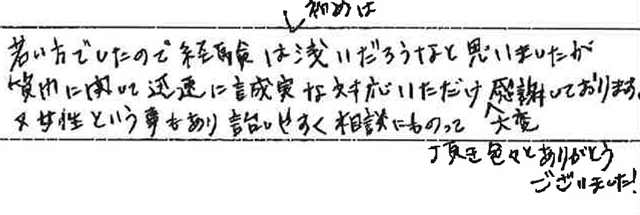 初めは
若い方でしたので経験は浅いだろうなと思いましたが
質問に関して迅速に誠実な対応いただけ大変感謝しております。
又女性という事もあり話しやすく相談にものって
頂き色々とありがとう
ございました!